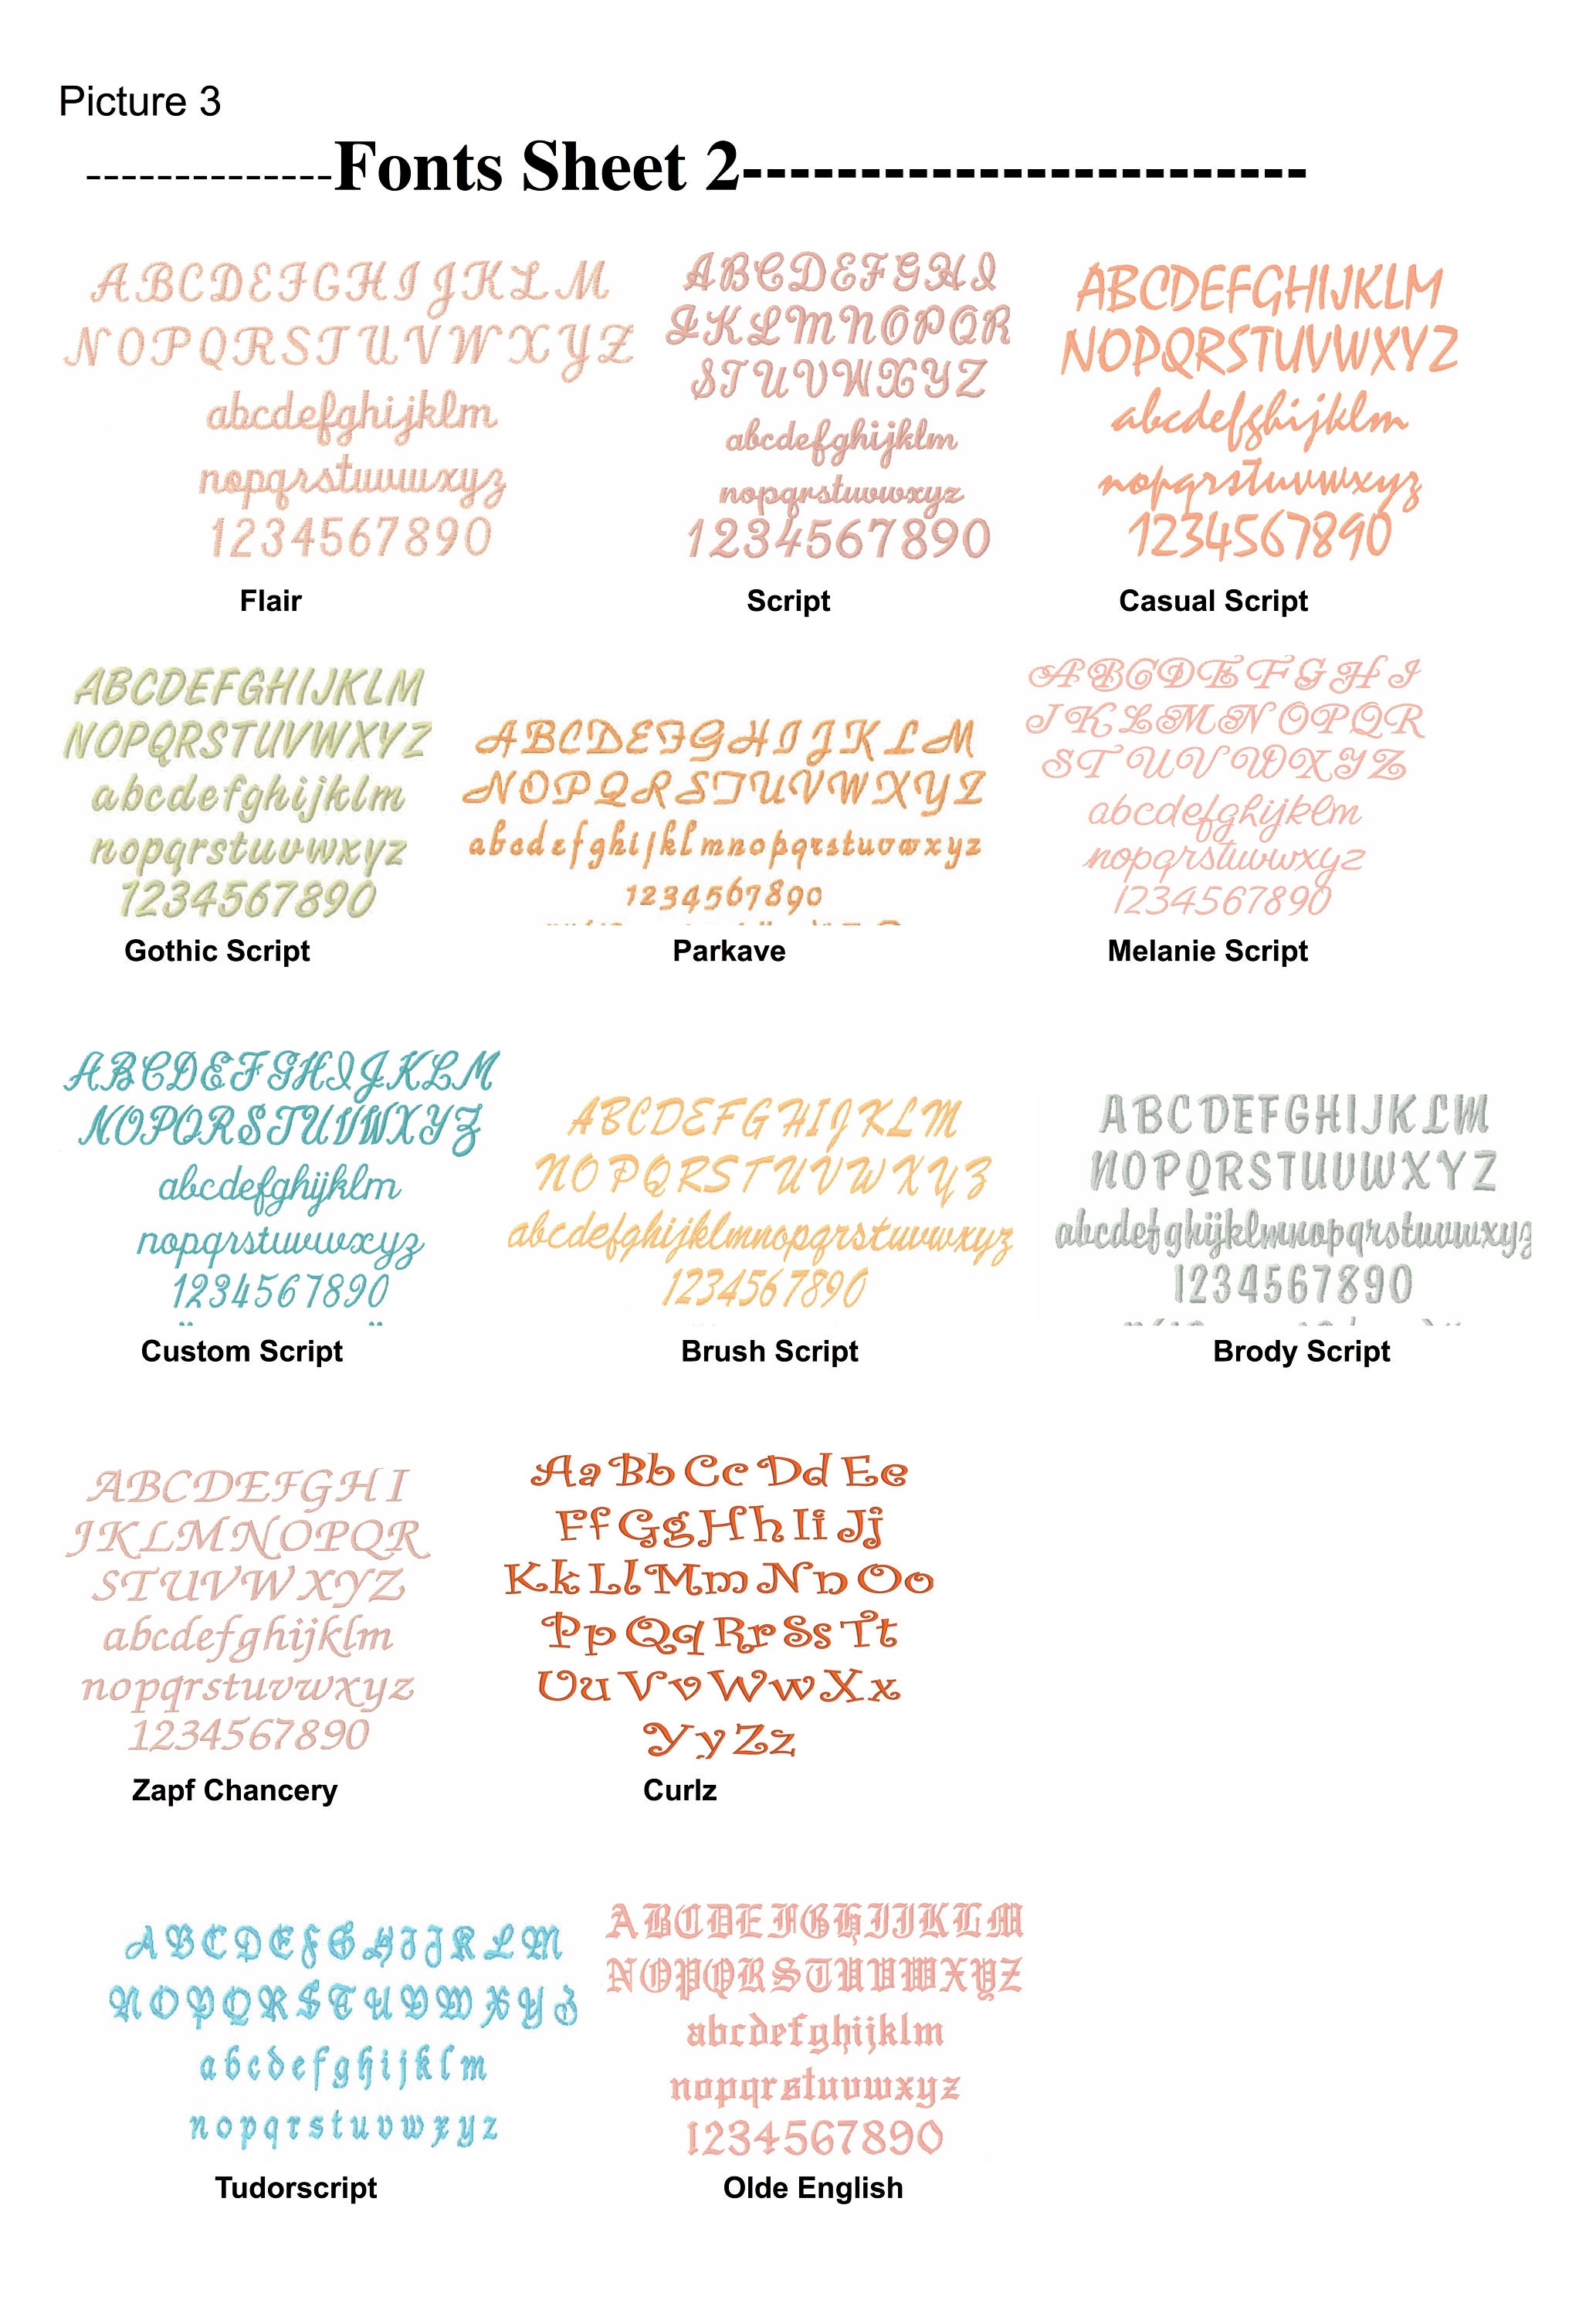 Picture 3
--------------Fonts Sheet 2------------------------
ABCDEFGHIJKLM
NOPQRSTUVWXYZ
abcdefghijklm
nopqrstuvwxyz
1234567890
Flair
ABCDEFGHI
JKLMNOPQR
STUVWXYZ
abcdefghijklm
nopqrstuvwxyz
1234567890
Script
ABCDEFGHIJKLM
NOPQRSTUVWXYZ
abcdefghijklm
nopqrstuvwxyz
1234567890
Casual Script
ABCDEFGHIJKLM
NOPQRSTUVWXYZ
abcdefghijklm
nopqrstuvwxyz
1234567890
Gothic Script
ABCDEFGHIJKLM
NOPQRSTUVWXYZ
abcdefghijklmnopqrstuvwxyz
1234567890
Parkave
ABCDEFGHI
JKLMNOPQR
STUVWXYZ
abcdefghijklm
nopqrstuvwxyz
1234567890
Melanie Script
ABCDEFGHIJKLM
NOPQRSTUVWXYZ
abcdefghijklm
nopqrstuvwxyz
1234567890
Custom Script
ABCDEFGHIJKLM
NOPQRSTUVWXYZ
abcdefghijklmnopqrstuvwxyz
1234567890
Brush Script
ABCDEFGHIJKLM
NOPQRSTUVWXYZ
abcdefghijklmnopqrstuvwxyz
1234567890
Brody Script
ABCDEFGHI
JKLMNOPQR
STUVWXYZ
abcdefghijklm
nopqrstuvwxyz
1234567890
Zapf Chancery
Aa Bb Cc Dd Ee
Ff Gg Hh Ii Jj
Kk Ll Mm Nn Oo
Pp Qq Rr Ss Tt
Uu Vv Ww Xx
Yy Zz
Curlz
ABCDEFGHIJKLM
NOPQRSTUVWXYZ
abcdefghijklm
nopqrstuvwxyz
Tudorscript
ABCDEFGHIJKLM
NOPQRSTUVWXYZ
abcdefghijklm
nopqrstuvwxyz
1234567890
Olde English